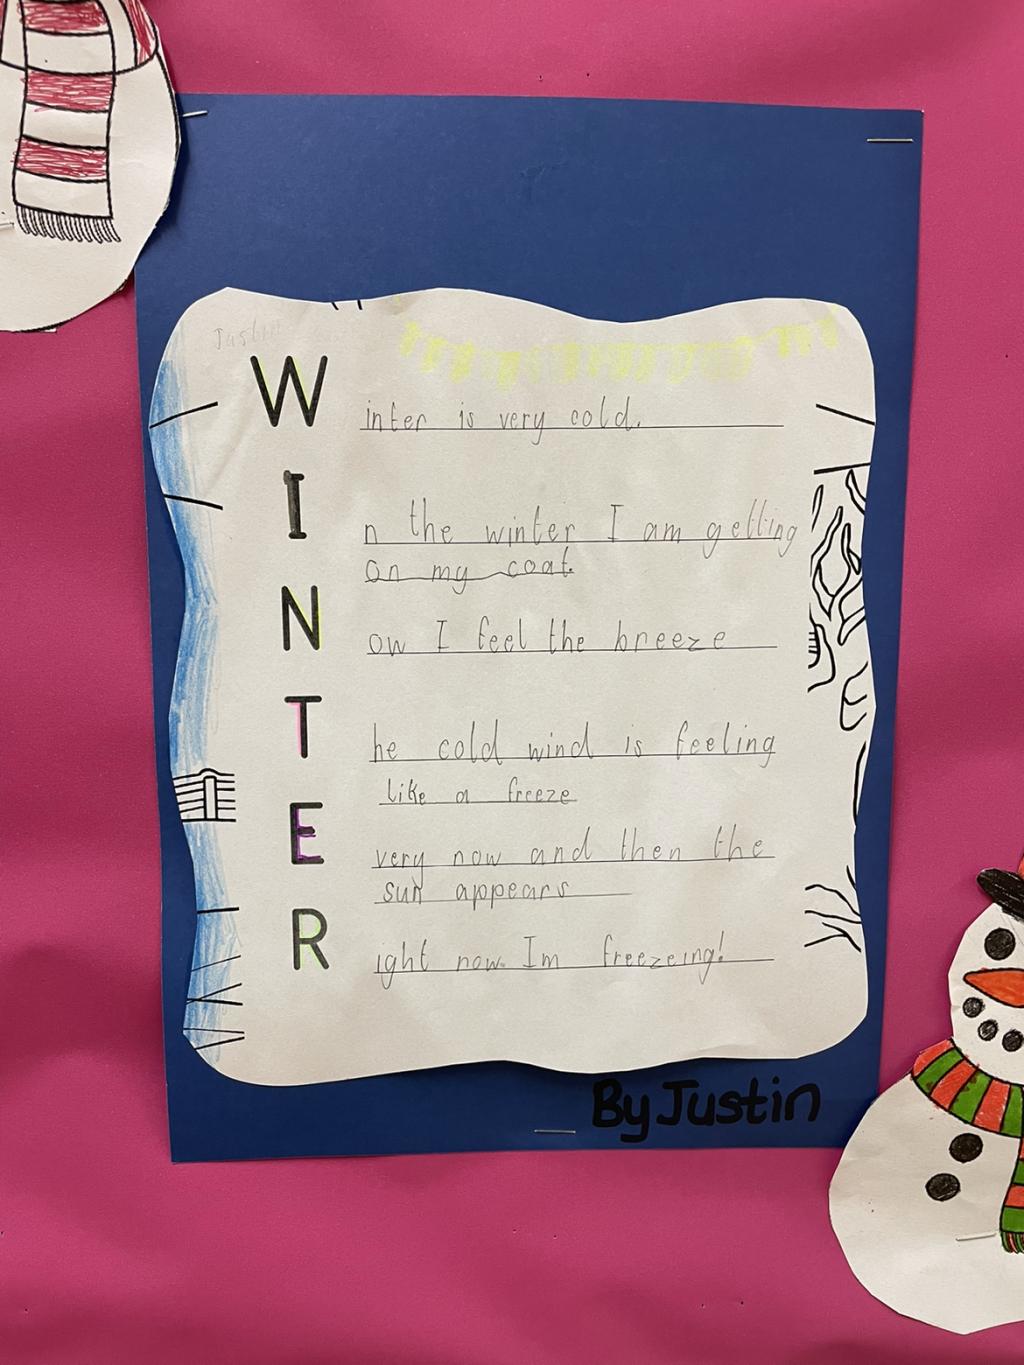 Justin
W inter is very cold.
I n the winter I am getting
on my coat.
N ow I feel the breeze
T he cold wind is feeling
like a freeze
E very now and then the
sun appears
R ight now Im freezeing!
By Justin